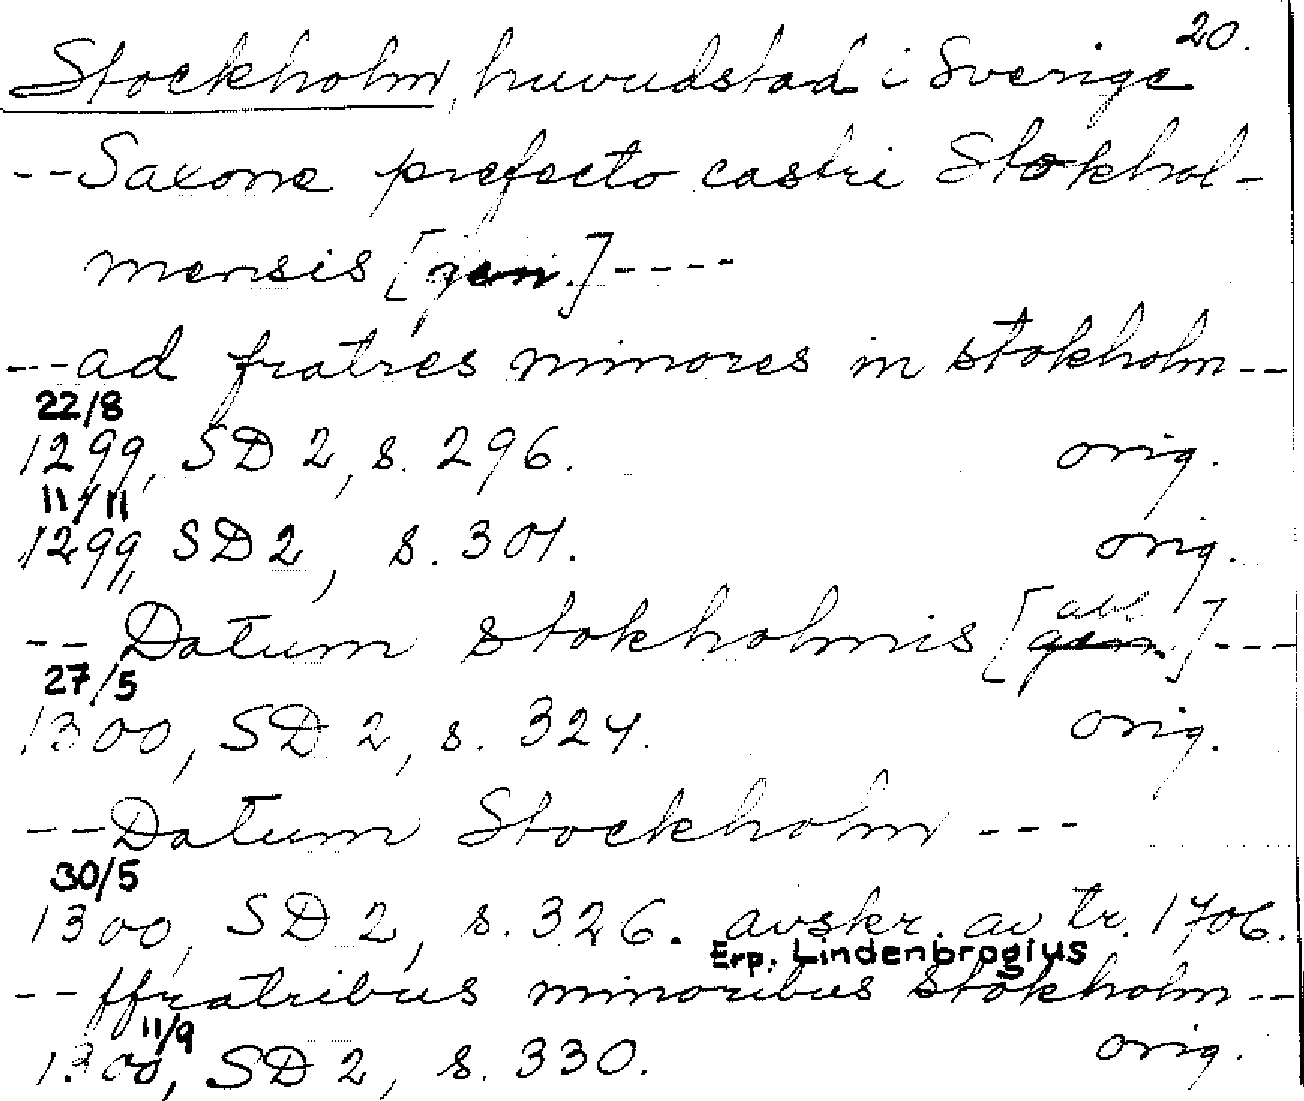 20.
Stockholm, huvudstad i Sverige
--Saxone prefecto castri Stokhol-
mensis [gen.]----
---ad fratres minores in stokholm--
22/8
1299, SD 2, s. 296. orig.
11/11
1299, SD 2, s. 301. orig.
abl
-- Datum stokholmis [gen.]---
27/5
1300, SD 2, s. 324. orig.
--Datum Stockholm ---
30/5
1300, SD 2, s. 326. avskr. av tr. 1706.
Erp. Lindenbrogius
--ffratribus minoribus stokholm--
11/9
1300, SD 2, s. 330. orig.